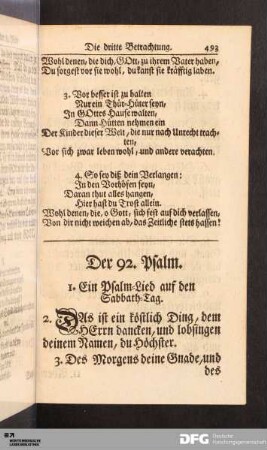 Die dritte Betrachtung. 493
Wohl denen, die dich, GOtt, zu ihrem Vater haben,
Du sorgest vor sie wohl, du kanst sie kräfftig laben.
3. Vor besser ist zu halten
Nur ein Thür-Hüter seyn,
In GOttes Hause walten,
Dann Hütten nehmen ein
Der Kinder dieser Welt, die nur nach Unrecht trach-
ten,
Vor sich zwar leben wohl, und andere verachten.
4. So sey diß dein Verlangen:
In den Vorhöfen seyn,
Daran thut alles hangen,
Hier hast du Trost allein.
Wohl denen, die, o Gott, sich fest auf dich verlassen,
Von dir nicht weichen ab, das Zeitliche stets hassen!
Der 92. Psalm.
1. Ein Psalm-Lied auf den
Sabbath-Tag.
2. DAs ist ein köstlich Ding, dem
HErrn dancken, und lobsingen
deinem Namen, du Höchster.
3. Des Morgens deine Gnade, und
des
DFG Deutsche
Forschungsgemeinschaft